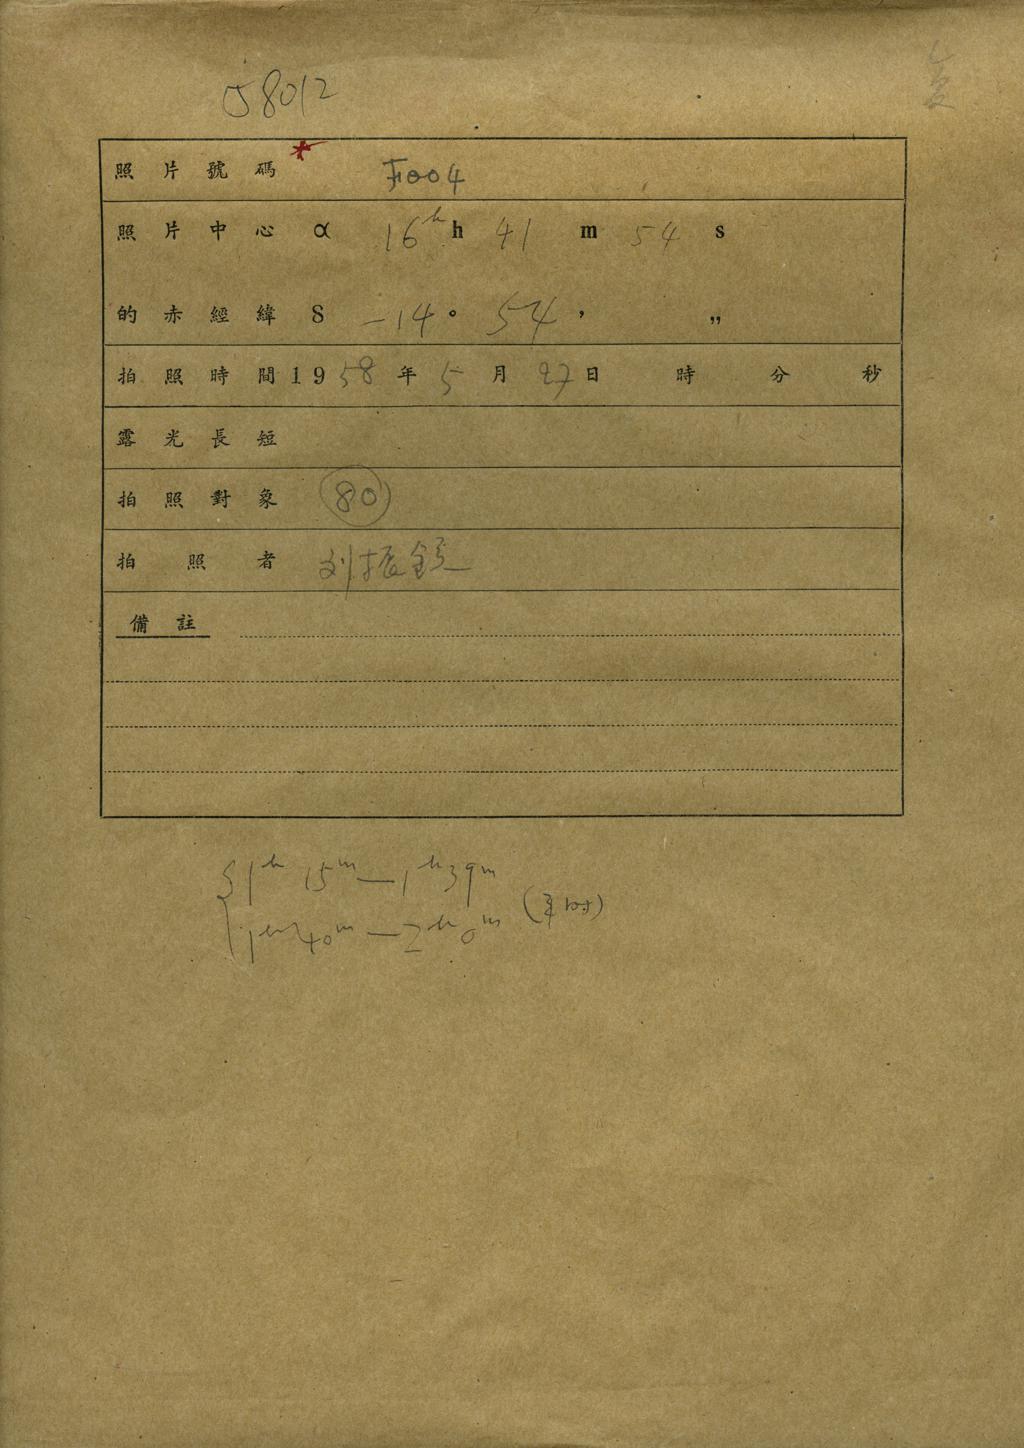 58012
照片號碼 F004
照片中心 α 16ʰ h 41 m 54 s
的赤經緯 δ -14° 54 ’ ”
拍照時間 1958年5月27日 時 分 秒
露光長短
拍照對象 80
拍照者 刘振
備註
1ʰ 15ᵐ — 1ʰ 39ᵐ
1ʰ 40ᵐ — 2ʰ 0ᵐ